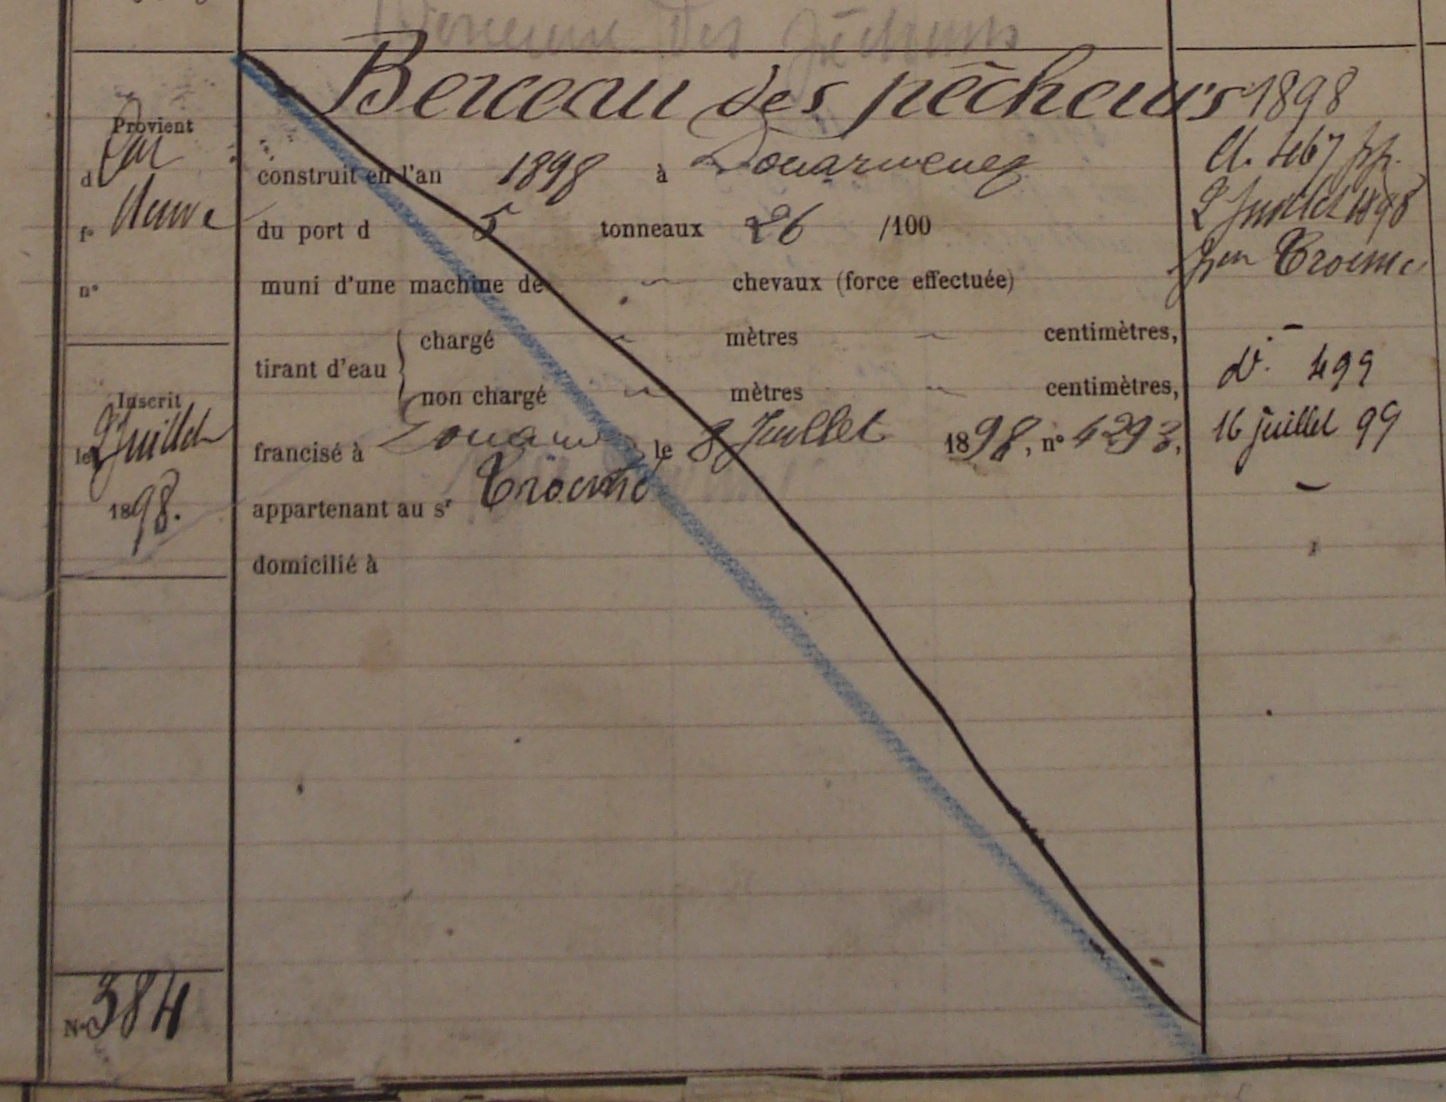 Berceau des pêcheurs
Provient
d
fº Neuve
nº
construit en l'an 1898 à Douarnenez
du port d 5 tonneaux 26 /100
muni d'une machine de chevaux (force effectuée)
tirant d'eau
chargé mètres centimètres,
non chargé mètres centimètres,
Inscrit
le 2 Juillet
1898.
francisé à Douarn le 8 Juillet 1898, nº 4293,
appartenant au sr
domicilié à
Nº 384
1898
2 Juillet 1898
499
16 juillet 99